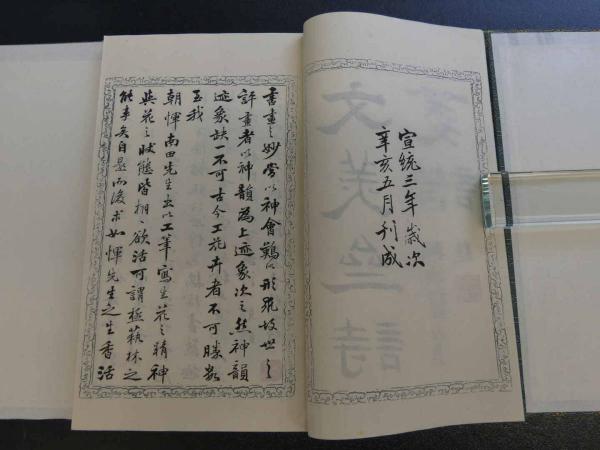 宣統三年歲次
辛亥五月刊成
書畫之妙當以神會難以形求故世之
評畫者以神韻為上迹象次之然神韻
迹象缺一不可古今工花卉者不可勝數
至我
朝惲南田先生出以工筆寫生花之精神
與花之狀態皆栩栩欲活可謂極藝林之
能事矣自是而後求如惲先生之生香活